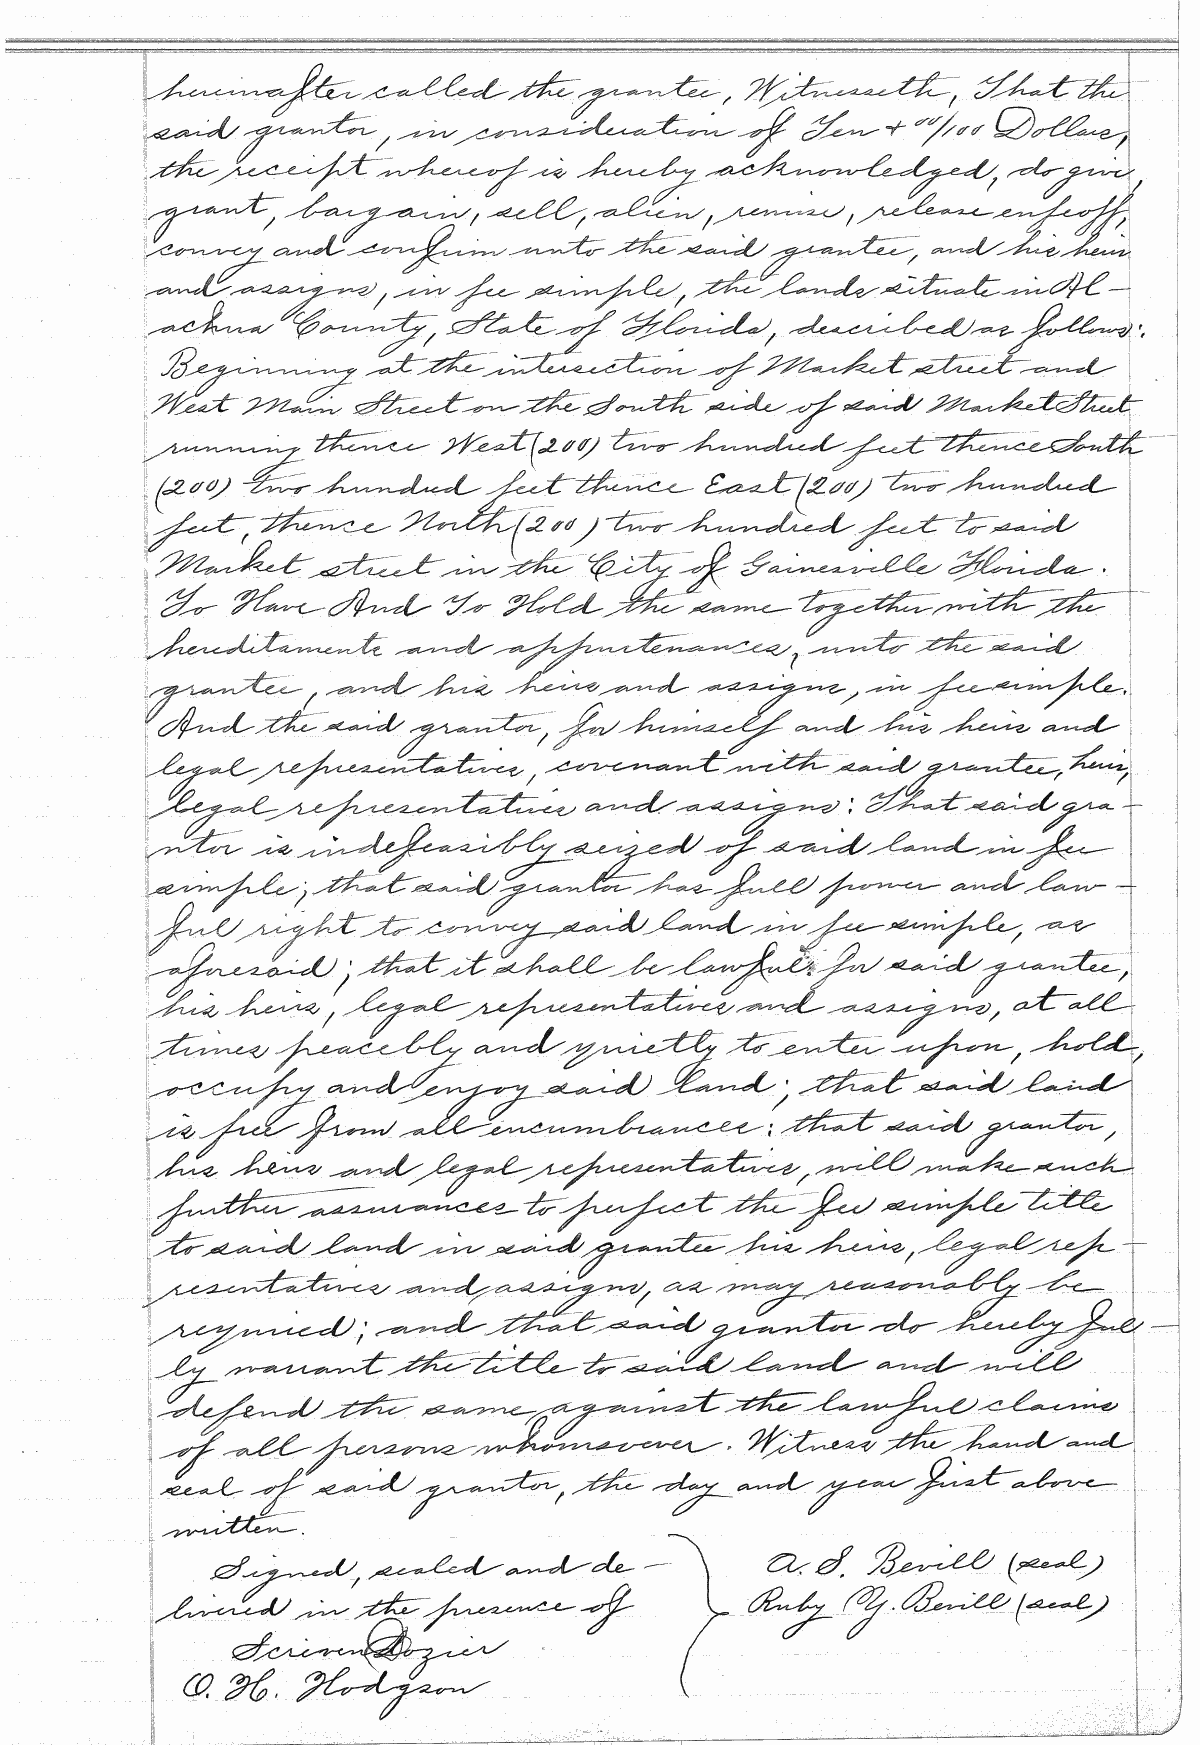 hereinafter called the grantee, Witnesseth, That the
said grantor, in consideration of Ten + 00/100 Dollars,
the receipt whereof is hereby acknowledged, do give,
grant, bargain, sell, alien, remise, release enfeoff,
convey and confirm unto the said grantee, and his heirs
and assigns, in fee simple, the lands situate in Al-
achua County, State of Florida, described as follows:
Beginning at the intersection of Market street and
West Main Street on the South side of said Market Street
running thence West (200) two hundred feet thence South
(200) two hundred feet thence East (200) two hundred
feet, thence North (200) two hundred feet to said
Market street in the City of Gainesville Florida.
To Have And To Hold the same together with the
hereditaments and appurtenances, unto the said
grantee, and his heirs and assigns, in fee simple.
And the said grantor, for himself and his heirs and
legal representatives, covenant with said grantee, heirs,
legal representatives and assigns: That said gra-
ntor is indefeasibly seized of said land in fee
simple; that said grantor has full power and law-
ful right to convey said land in fee simple, as
aforesaid; that it shall be lawful for said grantee,
his heirs, legal representatives and assigns, at all
times peacebly and quietly to enter upon, hold,
occupy and enjoy said land; that said land
is free from all encumbrances: that said grantor,
his heirs and legal representatives, will make such
further assurances to perfect the fee simple title
to said land in said grantee his heirs, legal rep-
resentatives and assigns, as may reasonably be
required; and that said grantor do hereby ful-
ly warrant the title to said land and will
defend the same against the lawful claims
of all persons whomsoever. Witness the hand and
seal of said grantor, the day and year first above
written.
Signed, sealed and de-
livered in the presence of
Scriven Dozier
O. H. Hodgson
A. S. Bevill (seal)
Ruby Y. Bevill (seal)